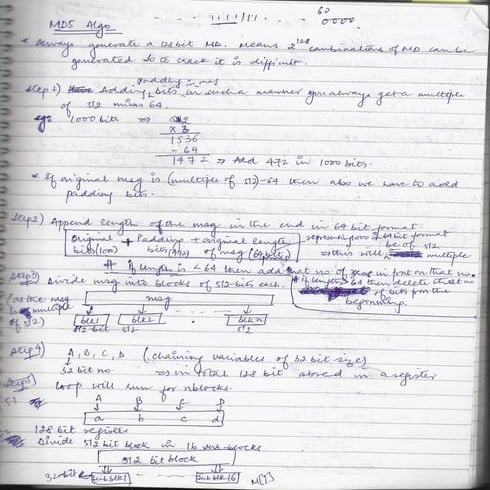 MD5 Algo
60
0000.
* Always generate a 128 bit MD. Means 2^128 combinations of MD can be
generated so to crack it is difficult.
padding in msg
Step 1) Adding bits in such a manner you always get a multiple
of 512 minus 64.
eg: 1000 bits ⇒ 512
x 3
1536
- 64
1472 ⇒ Add 472 in 1000 bits.
* If original msg is (multiple of 512)-64 then also we have to add
padding bits.
Step 2) Append length of the msg in the end in 64 bit format.
Original + Padding + original length
bits (1000) bits (472) of msg (64 bits)
64 bit format
⇒ this will be of 512 multiple
# If length is < 64 then add that no. of zeros in front on that no.
# if length > 64 then delete that no
of bits from the
beginning.
Step 3) Divide msg into blocks of 512 bits each.
(as the msg
is multiple
of 512)
msg
blk1 blk2 . . . blk n
512 bit 512 512
Step 4) A, B, C, D (chaining variables of 32 bit size)
32 bit no. ⇒ in total 128 bit stored in a register
Step 5) Loop will run for n blocks.
5.1
A B C D
a b c d
128 bit register
Divide 512 bit block in 16 sub-blocks
512 bit block
32 bit sub blk 1 sub blk 16 M[T]